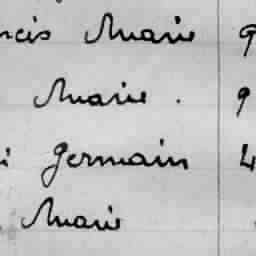 ncis Marie 9
Marie . 9
i Germain 4
Marie